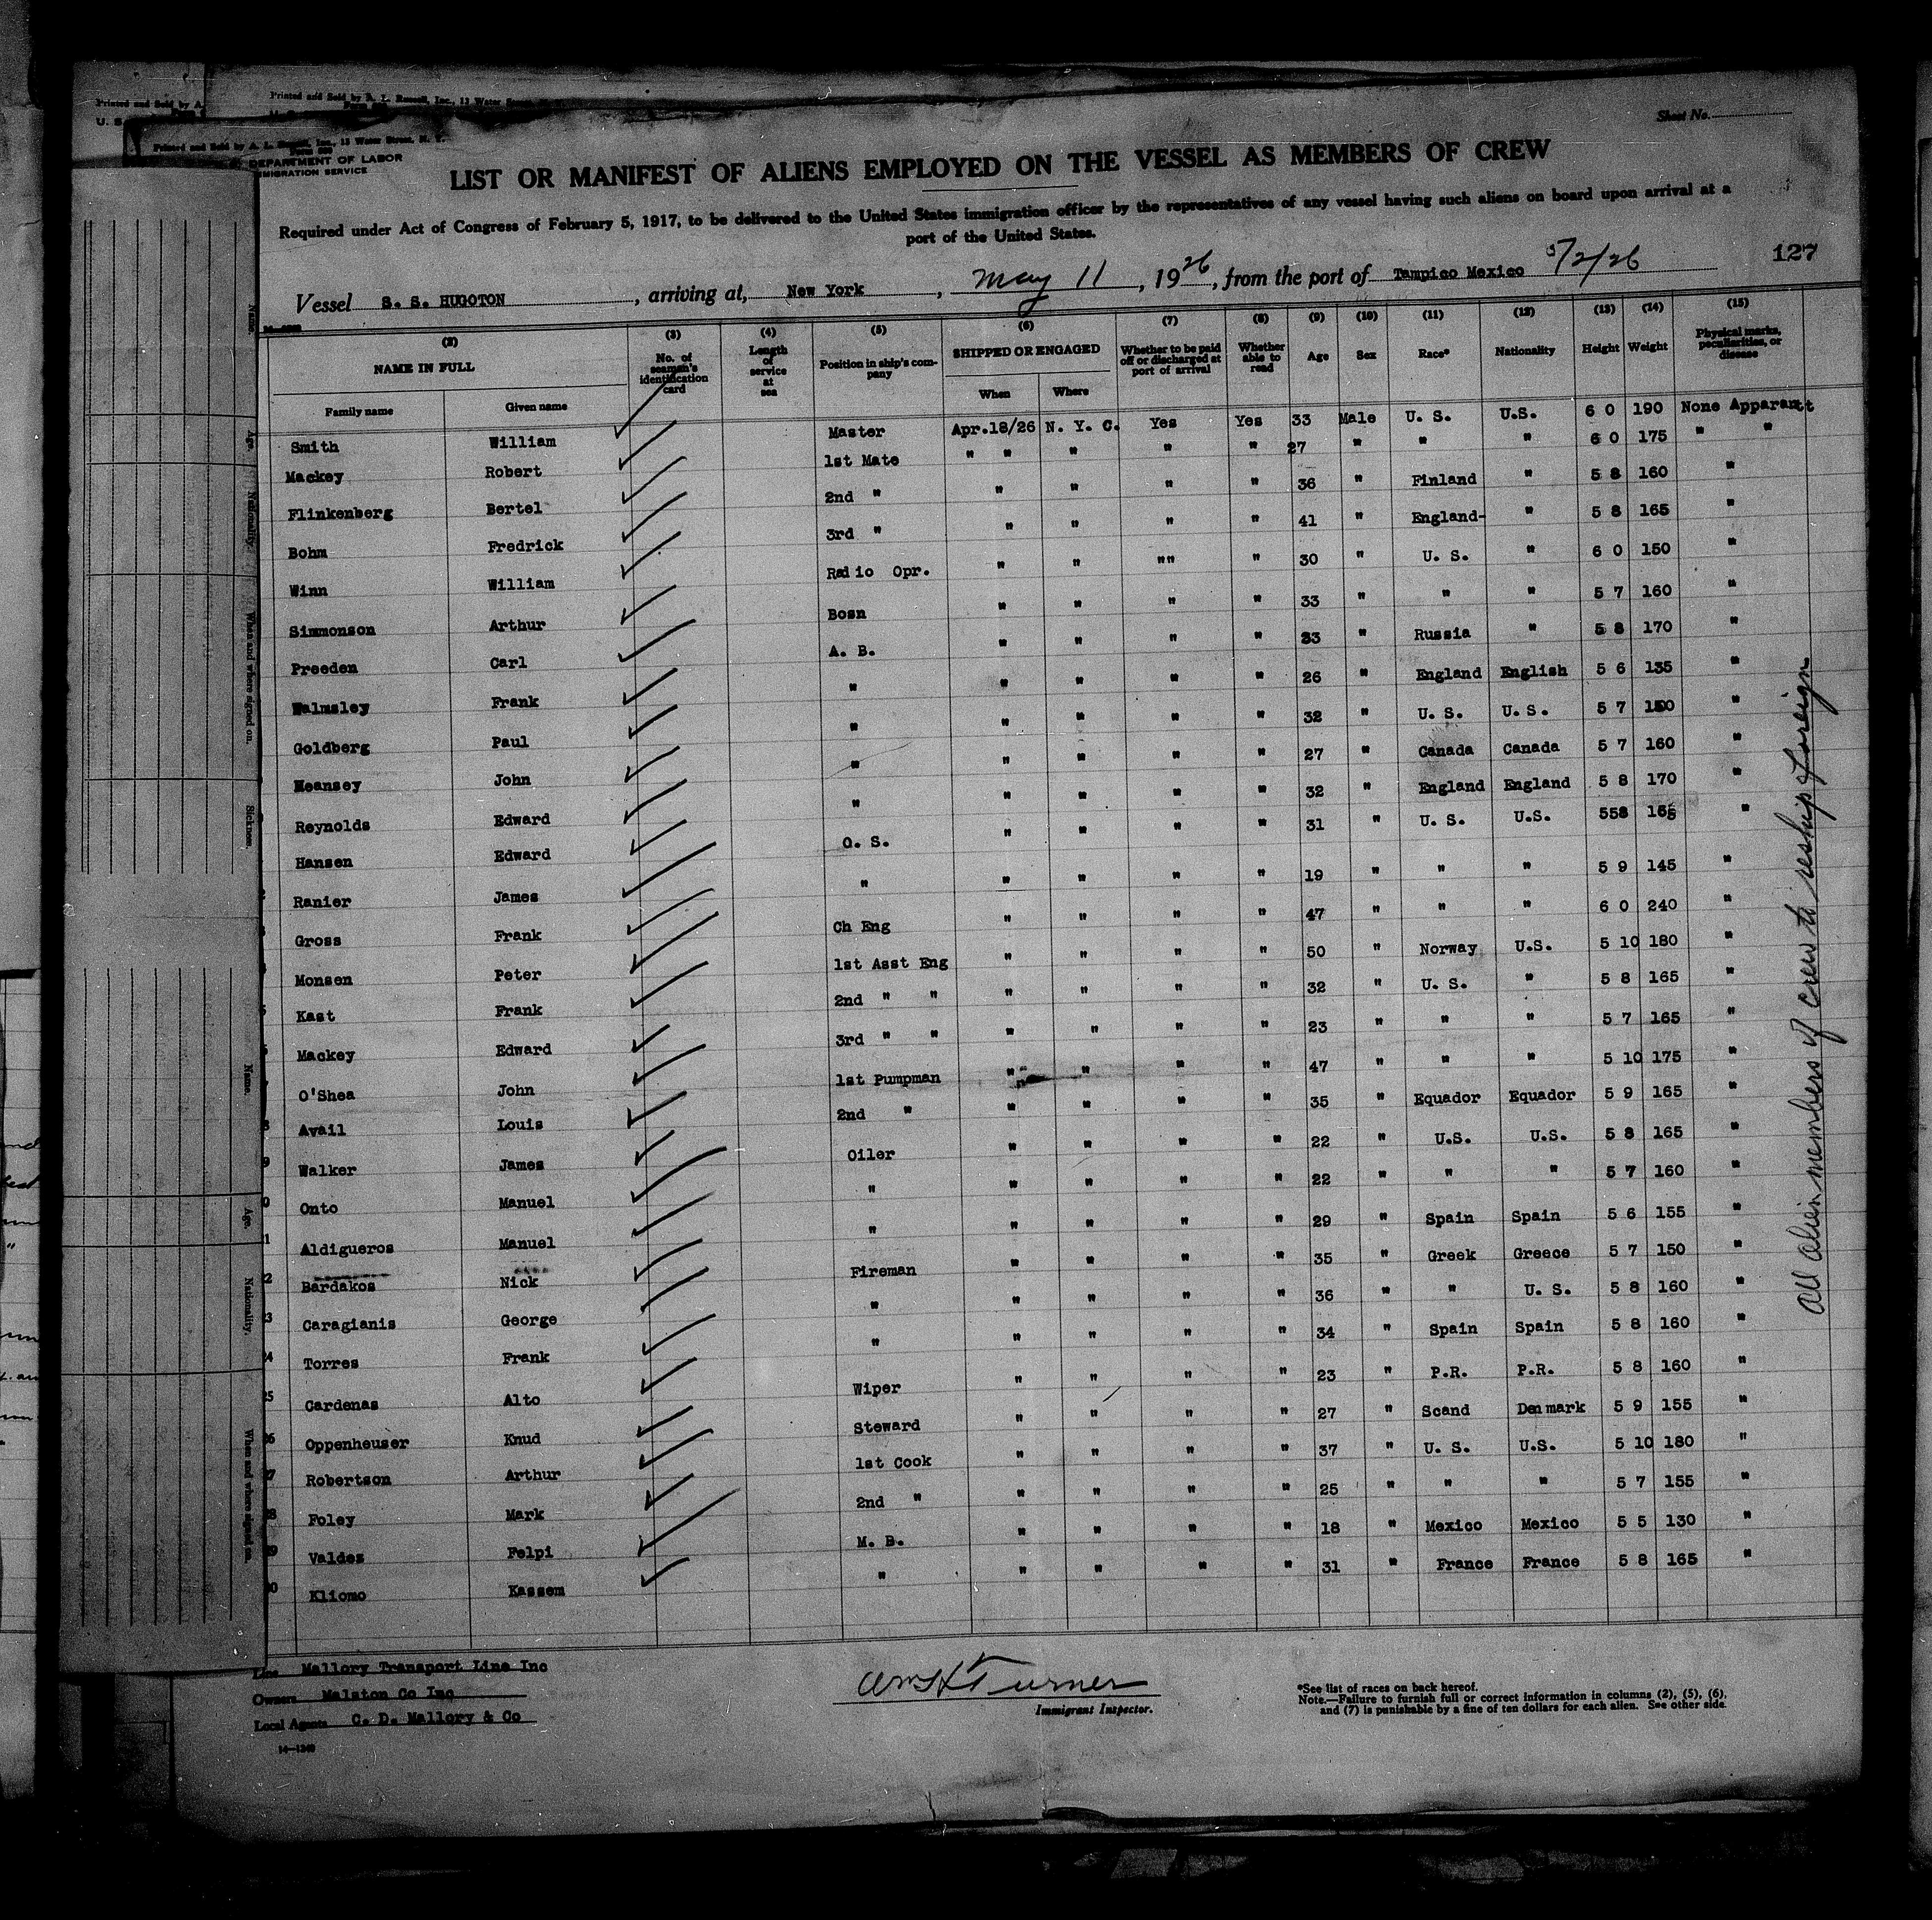 Sheet No.
Printed and Sold by A. L. Russell, Inc., 13 Water Street, N. Y.
DEPARTMENT OF LABOR
IMMIGRATION SERVICE
LIST OR MANIFEST OF ALIENS EMPLOYED ON THE VESSEL AS MEMBERS OF CREW
Required under Act of Congress of February 5, 1917, to be delivered to the United States immigration officer by the representatives of any vessel having such aliens on board upon arrival at a
port of the United States.
127
Vessel S. S. HUGOTON, arriving at, New York, May 11, 1926, from the port of Tampico Mexico 5/2/26
(2) (3) (4) (5) (6) (7) (8) (9) (10) (11) (12) (13) (14) (15)
NAME IN FULL No. of seaman's identification card Length of service at sea Position in ship's company SHIPPED OR ENGAGED Whether to be paid off or discharged at port of arrival Whether able to read Age Sex Race* Nationality Height Weight Physical marks, peculiarities, or disease
Family name Given name When Where
Smith William Master Apr.18/26 N. Y. C. Yes Yes 33 Male U. S. U.S. 6 0 190 None Apparant
Mackey Robert 1st Mate " " " " " 27 " " " 6 0 175 " "
Flinkenberg Bertel 2nd " " " " " 36 " Finland " 5 8 160 "
Bohm Fredrick 3rd " " " " " 41 " England- " 5 8 165 "
Winn William Radio Opr. " " "" " 30 " U. S. " 6 0 150 "
Simmonson Arthur Bosn " " " " 33 " " " 5 7 160 "
Preeden Carl A. B. " " " " 33 " Russia " 5 8 170 "
Walmsley Frank " " " " " 26 " England English 5 6 135 "
Goldberg Paul " " " " " 32 " U. S. U.S. 5 7 150 "
Meansey John " " " " " 27 " Canada Canada 5 7 160 "
Reynolds Edward " " " " " 32 " England England 5 8 170 "
Hansen Edward O. S. " " " " 31 " U. S. U.S. 558 165 "
Ranier James " " " " " 19 " " " 5 9 145 "
Gross Frank Ch Eng " " " " 47 " " " 6 0 240 "
Monsen Peter 1st Asst Eng " " " " 50 " Norway U.S. 5 10 180 "
Kast Frank 2nd " " " " " " 32 " U. S. " 5 8 165 "
Mackey Edward 3rd " " " " " " 23 " " " 5 7 165 "
O'Shea John 1st Pumpman " " " " 47 " " " 5 10 175 "
Avail Louis 2nd " " " " " 35 " Equador Equador 5 9 165 "
Walker James Oiler " " " " 22 " U.S. U.S. 5 8 165 "
Onto Manuel " " " " " 22 " " " 5 7 160 "
Aldigueros Manuel " " " " " 29 " Spain Spain 5 6 155 "
Bardakos Nick Fireman " " " " 35 " Greek Greece 5 7 150 "
Caragianis George " " " " " 36 " " U. S. 5 8 160 "
Torres Frank " " " " " 34 " Spain Spain 5 8 160 "
Cardenas Alto Wiper " " " " 23 " P.R. P.R. 5 8 160 "
Oppenheuser Knud Steward " " " " 27 " Scand Denmark 5 9 155 "
Robertson Arthur 1st Cook " " " " 37 " U. S. U.S. 5 10 180 "
Foley Mark 2nd " " " " " 25 " " " 5 7 155 "
Valdes Felpi M. B. " " " " 18 " Mexico Mexico 5 5 130 "
Kliomo Kassem " " " " " 31 " France France 5 8 165 "
All alien members of crew to reship foreign
Line Mallory Transport Line Inc
Owners Malston Co Inc
Local Agents C. D. Mallory & Co
14-1240
Turner
Immigrant Inspector.
*See list of races on back hereof.
Note.—Failure to furnish full or correct information in columns (2), (5), (6),
and (7) is punishable by a fine of ten dollars for each alien. See other side.
Name.
Age.
Nationality.
When and where signed on.
Sickness.
Name.
Age.
Nationality.
When and where signed on.